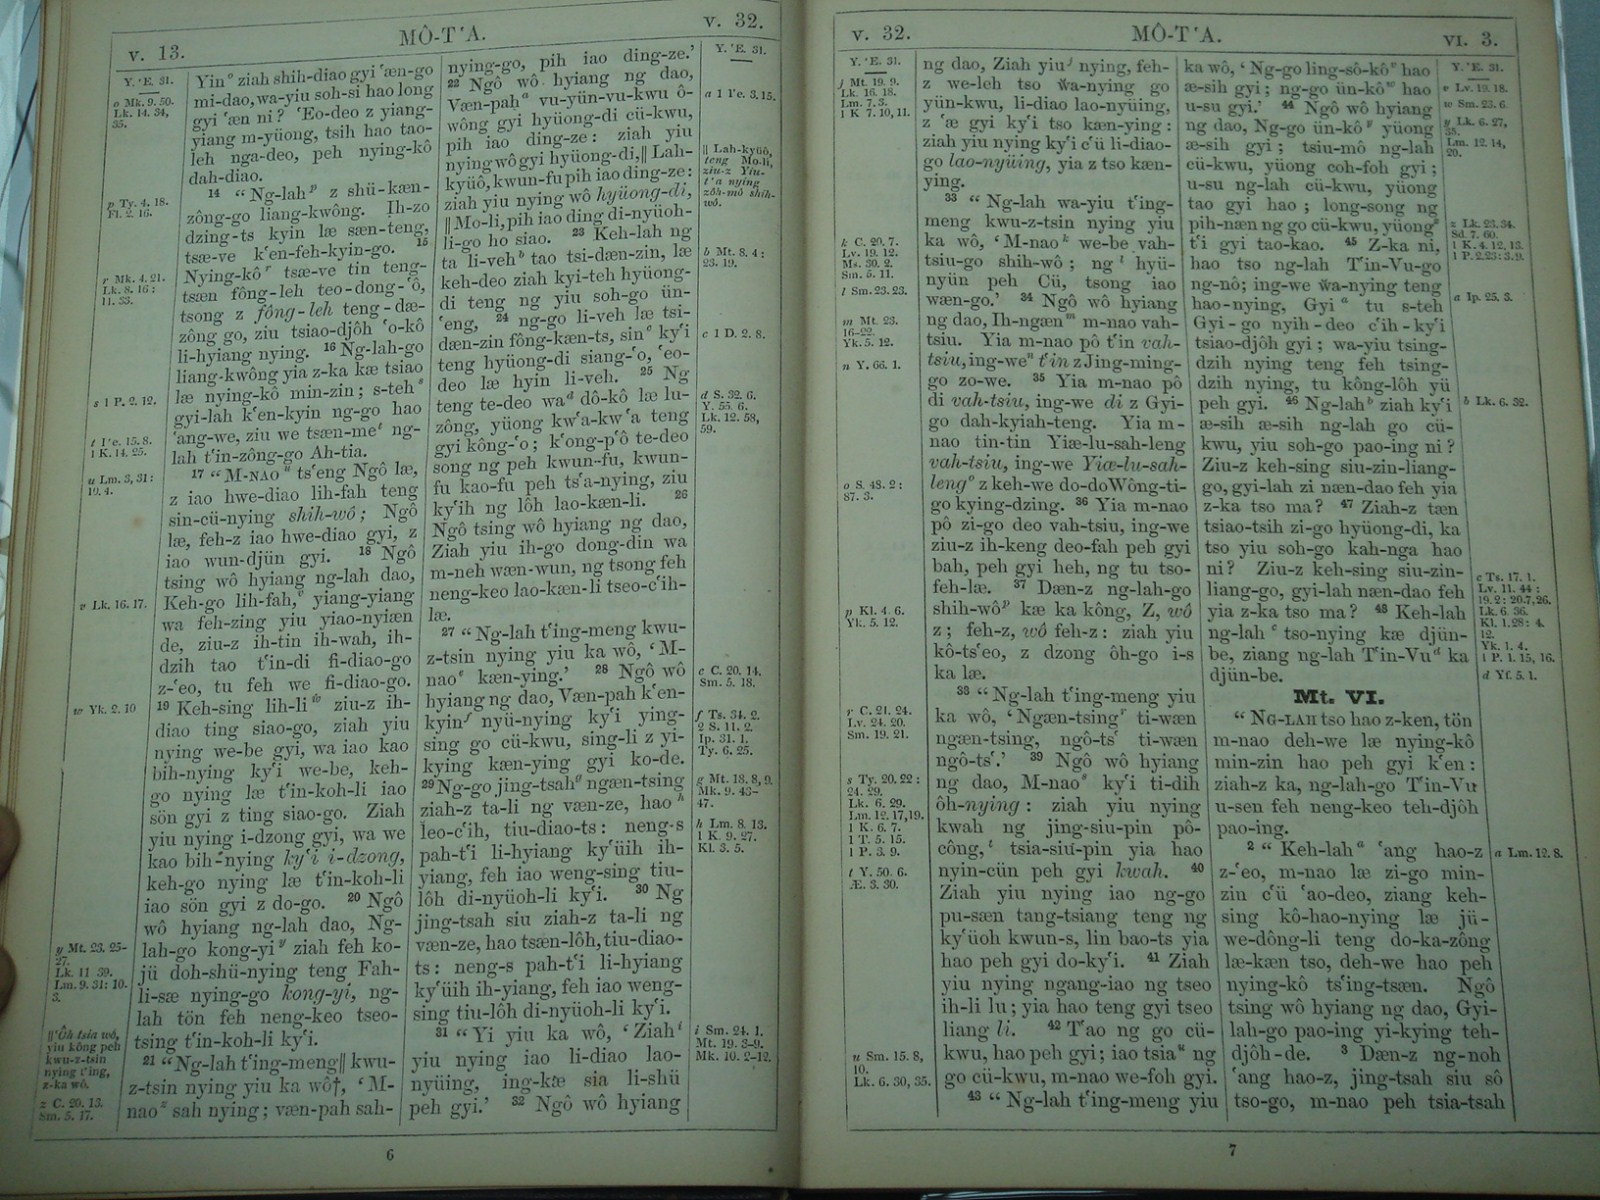 v. 13.
MÔ-T‘A.
v. 32.
Y. ‘E. 31.
o Mk. 9. 50.
Lk. 14. 34,
35.
p Ty. 4. 18.
Fl. 2. 16.
r Mk. 4. 21.
Lk. 8. 16 :
11. 33.
s 1 P. 2. 12.
t I‘e. 15. 8.
1 K. 14. 25.
u Lm. 3, 31 :
10. 4.
v Lk. 16. 17.
w Yk. 2. 10
y Mt. 23. 25-
27.
Lk. 11 39.
Lm. 9. 31: 10.
3.
‖ ‘Ôh tsia wô,
yiu kông peh
kwu-z-tsin
nying t‘ing,
z-ka wô.
z C. 20. 13.
Sm. 5. 17.
Yin° ziah shih-diao gyi ‘æn-go
mi-dao, wa-yiu soh-si hao long
gyi ‘æn ni? ‘Eo-deo z yiang-
yiang m-yüong, tsih hao tao-
leh nga-deo, peh nying-kô
dah-diao.
14 “Ng-lahᵖ z shü-kæn-
zông-go liang-kwông. Ih-zo
dzing-ts kyin læ sæn-teng,
tsæ-ve k‘en-feh-kyin-go. 15
Nying-kôʳ tsæ-ve tin teng-
tsæn fông-leh teo-dong-‘ô,
tsong z fông-leh teng-dæ-
zông go, ziu tsiao-djôh ‘o-kô
li-hyiang nying. 16 Ng-lah-go
liang-kwông yia z-ka kæ tsiao
læ nying-kô min-zin; s-tehˢ
gyi-lah k‘en-kyin ng-go hao
‘ang-we, ziu we tsæn-meᵗ ng-
lah t‘in-zông-go Ah-tia.
17 “M-NAOᵘ ts‘eng Ngô læ,
z iao hwe-diao lih-fah teng
sin-cü-nying shih-wô; Ngô
læ, feh-z iao hwe-diao gyi, z
iao wun-djün gyi. 18 Ngô
tsing wô hyiang ng-lah dao,
Keh-go lih-fah,ᵛ yiang-yiang
wa feh-zing yiu yiao-nyiæn
de, ziu-z ih-tin ih-wah, ih-
dzih tao t‘in-di fi-diao-go
z-‘eo, tu feh we fi-diao-go.
19 Keh-sing lih-liʷ ziu-z ih-
diao ting siao-go, ziah yiu
nying we-be gyi, wa iao kao
bih-nying ky‘i we-be, keh-
go nying læ t‘in-koh-li iao
sön gyi z ting siao-go. Ziah
yiu nying i-dzong gyi, wa we
kao bih-nying ky‘i i-dzong,
keh-go nying læ t‘in-koh-li
iao sön gyi z do-go. 20 Ngô
wô hyiang ng-lah dao, Ng-
lah-go kong-yiʸ ziah feh ko-
jü doh-shü-nying teng Fah-
li-sæ nying-go kong-yi, ng-
lah tön feh neng-keo tseo-
tsing t‘in-koh-li ky‘i.
21 “Ng-lah t‘ing-meng‖ kwu-
z-tsin nying yiu ka wô†, ‘M-
naoᶻ sah nying; væn-pah sah-
nying-go, pih iao ding-ze.’
22 Ngô wô hyiang ng dao,
Væn-pahᵃ vu-yün-vu-kwu ô-
wông gyi hyüong-di cü-kwu,
pih iao ding-ze : ziah yiu
nying wô gyi hyüong-di,‖ Lah-
kyüô, kwun-fu pih iao ding-ze:
ziah yiu nying wô hyüong-di,
‖ Mo-li, pih iao ding di-nyüoh-
li-go ho siao. 23 Keh-lah ng
ta li-vehᵇ tao tsi-dæn-zin, læ
keh-deo ziah kyi-teh hyüong-
di teng ng yiu soh-go ün-
‘eng, 24 ng-go li-veh læ tsi-
dæn-zin fông-kæn-ts, sinᶜ ky‘i
teng hyüong-di siang-‘o, ‘eo-
deo læ hyin li-veh. 25 Ng
teng te-deo waᵈ dô-kô læ lu-
zông, yüong kw‘a-kw‘a teng
gyi kông-‘o; k‘ong-p‘ô te-deo
song ng peh kwun-fu, kwun-
fu kao-fu peh ts‘a-nying, ziu
ky‘ih ng lôh lao-kæn-li. 26
Ngô tsing wô hyiang ng dao,
Ziah yiu ih-go dong-din wa
m-neh wæn-wun, ng tsong feh
neng-keo lao-kæn-li tseo-c‘ih-
læ.
27 “Ng-lah t‘ing-meng kwu-
z-tsin nying yiu ka wô, ‘M-
naoᵉ kæn-ying.’ 28 Ngô wô
hyiang ng dao, Væn-pah k‘en-
kyinᶠ nyü-nying ky‘i ying-
sing go cü-kwu, sing-li z yi-
kying kæn-ying gyi ko-de.
29 Ng-go jing-tsahᵍ ngæn-tsing
ziah-z ta-li ng væn-ze, haoʰ
leo-c‘ih, tiu-diao-ts : neng-s
pah-t‘i li-hyiang ky‘üih ih-
yiang, feh iao weng-sing tiu-
lôh di-nyüoh-li ky‘i. 30 Ng
jing-tsah siu ziah-z ta-li ng
væn-ze, hao tsæn-lôh, tiu-diao-
ts : neng-s pah-t‘i li-hyiang
ky‘üih ih-yiang, feh iao weng-
sing tiu-lôh di-nyüoh-li ky‘i.
31 “Yi yiu ka wô, ‘Ziahⁱ
yiu nying iao li-diao lao-
nyüing, ing-kæ sia li-shü
peh gyi.’ 32 Ngô wô hyiang
Y. ‘E. 31.
a 1 I‘e. 3. 15.
‖ Lah-kyüô,
teng Mo-li,
ziu-z Yiu-
t‘a nying
zôh-mô shih-
wô.
b Mt. 8. 4 :
23. 19.
c 1 D. 2. 8.
d S. 32. 6.
Y. 55. 6.
Lk. 12. 58,
59.
e C. 20. 14.
Sm. 5. 18.
f Ts. 34. 2.
2 S. 11. 2.
Ip. 31. 1.
Ty. 6. 25.
g Mt. 18. 8, 9.
Mk. 9. 43-
47.
h Lm. 8. 13.
1 K. 9. 27.
Kl. 3. 5.
i Sm. 24. 1.
Mt. 19. 3-9.
Mk. 10. 2-12.
6
v. 32.
MÔ-T‘A.
VI. 3.
Y. ‘E. 31.
j Mt. 19. 9.
Lk. 16. 18.
Lm. 7. 3.
1 K 7. 10, 11.
k C. 20. 7.
Lv. 19. 12.
Ms. 30. 2.
Sm. 5. 11.
l Sm. 23. 23.
m Mt. 23.
16-22.
Yk. 5. 12.
n Y. 66. 1.
o S. 48. 2 :
87. 3.
p Kl. 4. 6.
Yk. 5. 12.
r C. 21. 24.
Lv. 24. 20.
Sm. 19. 21.
s Ty. 20. 22 :
24. 29.
Lk. 6. 29.
Lm. 12. 17, 19.
1 K. 6. 7.
1 T. 5. 15.
1 P. 3. 9.
t Y. 50. 6.
Æ. 3. 30.
u Sm. 15. 8,
10.
Lk. 6. 30, 35.
ng dao, Ziah yiuʲ nying, feh-
z we-leh tso wa-nying go
yün-kwu, li-diao lao-nyüing,
z ‘æ gyi ky‘i tso kæn-ying :
ziah yiu nying ky‘i c‘ü li-diao-
go lao-nyüing, yia z tso kæn-
ying.
33 “Ng-lah wa-yiu t‘ing-
meng kwu-z-tsin nying yiu
ka wô, ‘M-naoᵏ we-be vah-
tsiu-go shih-wô; ngˡ hyü-
nyün peh Cü, tsong iao
wæn-go.’ 34 Ngô wô hyiang
ng dao, Ih-ngænᵐ m-nao vah-
tsiu. Yia m-nao pô t‘in vah-
tsiu, ing-weⁿ t‘in z Jing-ming-
go zo-we. 35 Yia m-nao pô
di vah-tsiu, ing-we di z Gyi-
go dah-kyiah-teng. Yia m-
nao tin-tin Yiæ-lu-sah-leng
vah-tsiu, ing-we Yiæ-lu-sah-
lengᵒ z keh-we do-do Wông-ti-
go kying-dzing. 36 Yia m-nao
pô zi-go deo vah-tsiu, ing-we
ziu-z ih-keng deo-fah peh gyi
bah, peh gyi heh, ng tu tso-
feh-læ. 37 Dæn-z ng-lah-go
shih-wôᵖ kæ ka kông, Z, wô
z; feh-z, wô feh-z : ziah yiu
kô-ts‘eo, z dzong ôh-go i-s
ka læ.
38 “Ng-lah t‘ing-meng yiu
ka wô, ‘Ngæn-tsingʳ ti-wæn
ngæn-tsing, ngô-ts‘ ti-wæn
ngô-ts‘.’ 39 Ngô wô hyiang
ng dao, M-naoˢ ky‘i ti-dih
ôh-nying : ziah yiu nying
kwah ng jing-siu-pin pô-
công,ᵗ tsia-siu-pin yia hao
nyin-cün peh gyi kwah. 40
Ziah yiu nying iao ng-go
pu-sæn tang-tsiang teng ng
ky‘üoh kwun-s, lin bao-ts yia
hao peh gyi do-ky‘i. 41 Ziah
yiu nying ngang-iao ng tseo
ih-li lu; yia hao teng gyi tseo
liang li. 42 T‘ao ng go cü-
kwu, hao peh gyi; iao tsiaᵘ ng
go cü-kwu, m-nao we-foh gyi.
43 “Ng-lah t‘ing-meng yiu
ka wô, ‘Ng-go ling-sô-kôᵛ hao
æ-sih gyi; ng-go ün-kôʷ hao
u-su gyi.’ 44 Ngô wô hyiang
ng dao, Ng-go ün-kôʸ yüong
æ-sih gyi; tsiu-mô ng-lah
cü-kwu, yüong coh-foh gyi;
u-su ng-lah cü-kwu, yüong
tao gyi hao; long-song ng
pih-næn ng go cü-kwu, yüongᶻ
t‘i gyi tao-kao. 45 Z-ka ni,
hao tso ng-lah T‘in-Vu-go
ng-nô; ing-we wa-nying teng
hao-nying, Gyiᵃ tu s-teh
Gyi-go nyih-deo c‘ih-ky‘i
tsiao-djôh gyi; wa-yiu tsing-
dzih nying teng feh tsing-
dzih nying, tu kông-lôh yü
peh gyi. 46 Ng-lahᵇ ziah ky‘i
æ-sih æ-sih ng-lah go cü-
kwu, yiu soh-go pao-ing ni?
Ziu-z keh-sing siu-zin-liang-
go, gyi-lah zi næn-dao feh yia
z-ka tso ma? 47 Ziah-z tæn
tsiao-tsih zi-go hyüong-di, ka
tso yiu soh-go kah-nga hao
ni? Ziu-z keh-sing siu-zin-
liang-go, gyi-lah næn-dao feh
yia z-ka tso ma? 48 Keh-lah
ng-lahᶜ tso-nying kæ djün-
be, ziang ng-lah T‘in-Vuᵈ ka
djün-be.
Mt. VI.
“NG-LAH tso hao z-ken, tön
m-nao deh-we læ nying-kô
min-zin hao peh gyi k‘en :
ziah-z ka, ng-lah-go T‘in-Vu
u-sen feh neng-keo teh-djôh
pao-ing.
2 “Keh-lahᵃ ‘ang hao-z
z-‘eo, m-nao læ zi-go min-
zin c‘ü ‘ao-deo, ziang keh-
sing kô-hao-nying læ jü-
we-dông-li teng do-ka-zông
læ-kæn tso, deh-we hao peh
nying-kô ts‘ing-tsæn. Ngô
tsing wô hyiang ng dao, Gyi-
lah-go pao-ing yi-kying teh-
djôh-de. 3 Dæn-z ng-noh
‘ang hao-z, jing-tsah siu sô
tso-go, m-nao peh tsia-tsah
Y. ‘E. 31.
v Lv. 19. 18.
w Sm. 23. 6.
y Lk. 6. 27,
35.
Lm. 12. 14,
20.
z Lk. 23. 34.
Sd. 7. 60.
1 K. 4. 12, 13.
1 P. 2. 23 : 3. 9.
a Ip. 25. 3.
b Lk. 6. 32.
c Ts. 17. 1.
Lv. 11. 44 :
19. 2 : 20. 7, 26.
Lk. 6. 36.
Kl. 1. 28 : 4.
12.
Yk. 1. 4.
1 P. 1. 15, 16.
d Yf. 5. 1.
a Lm. 12. 8.
7